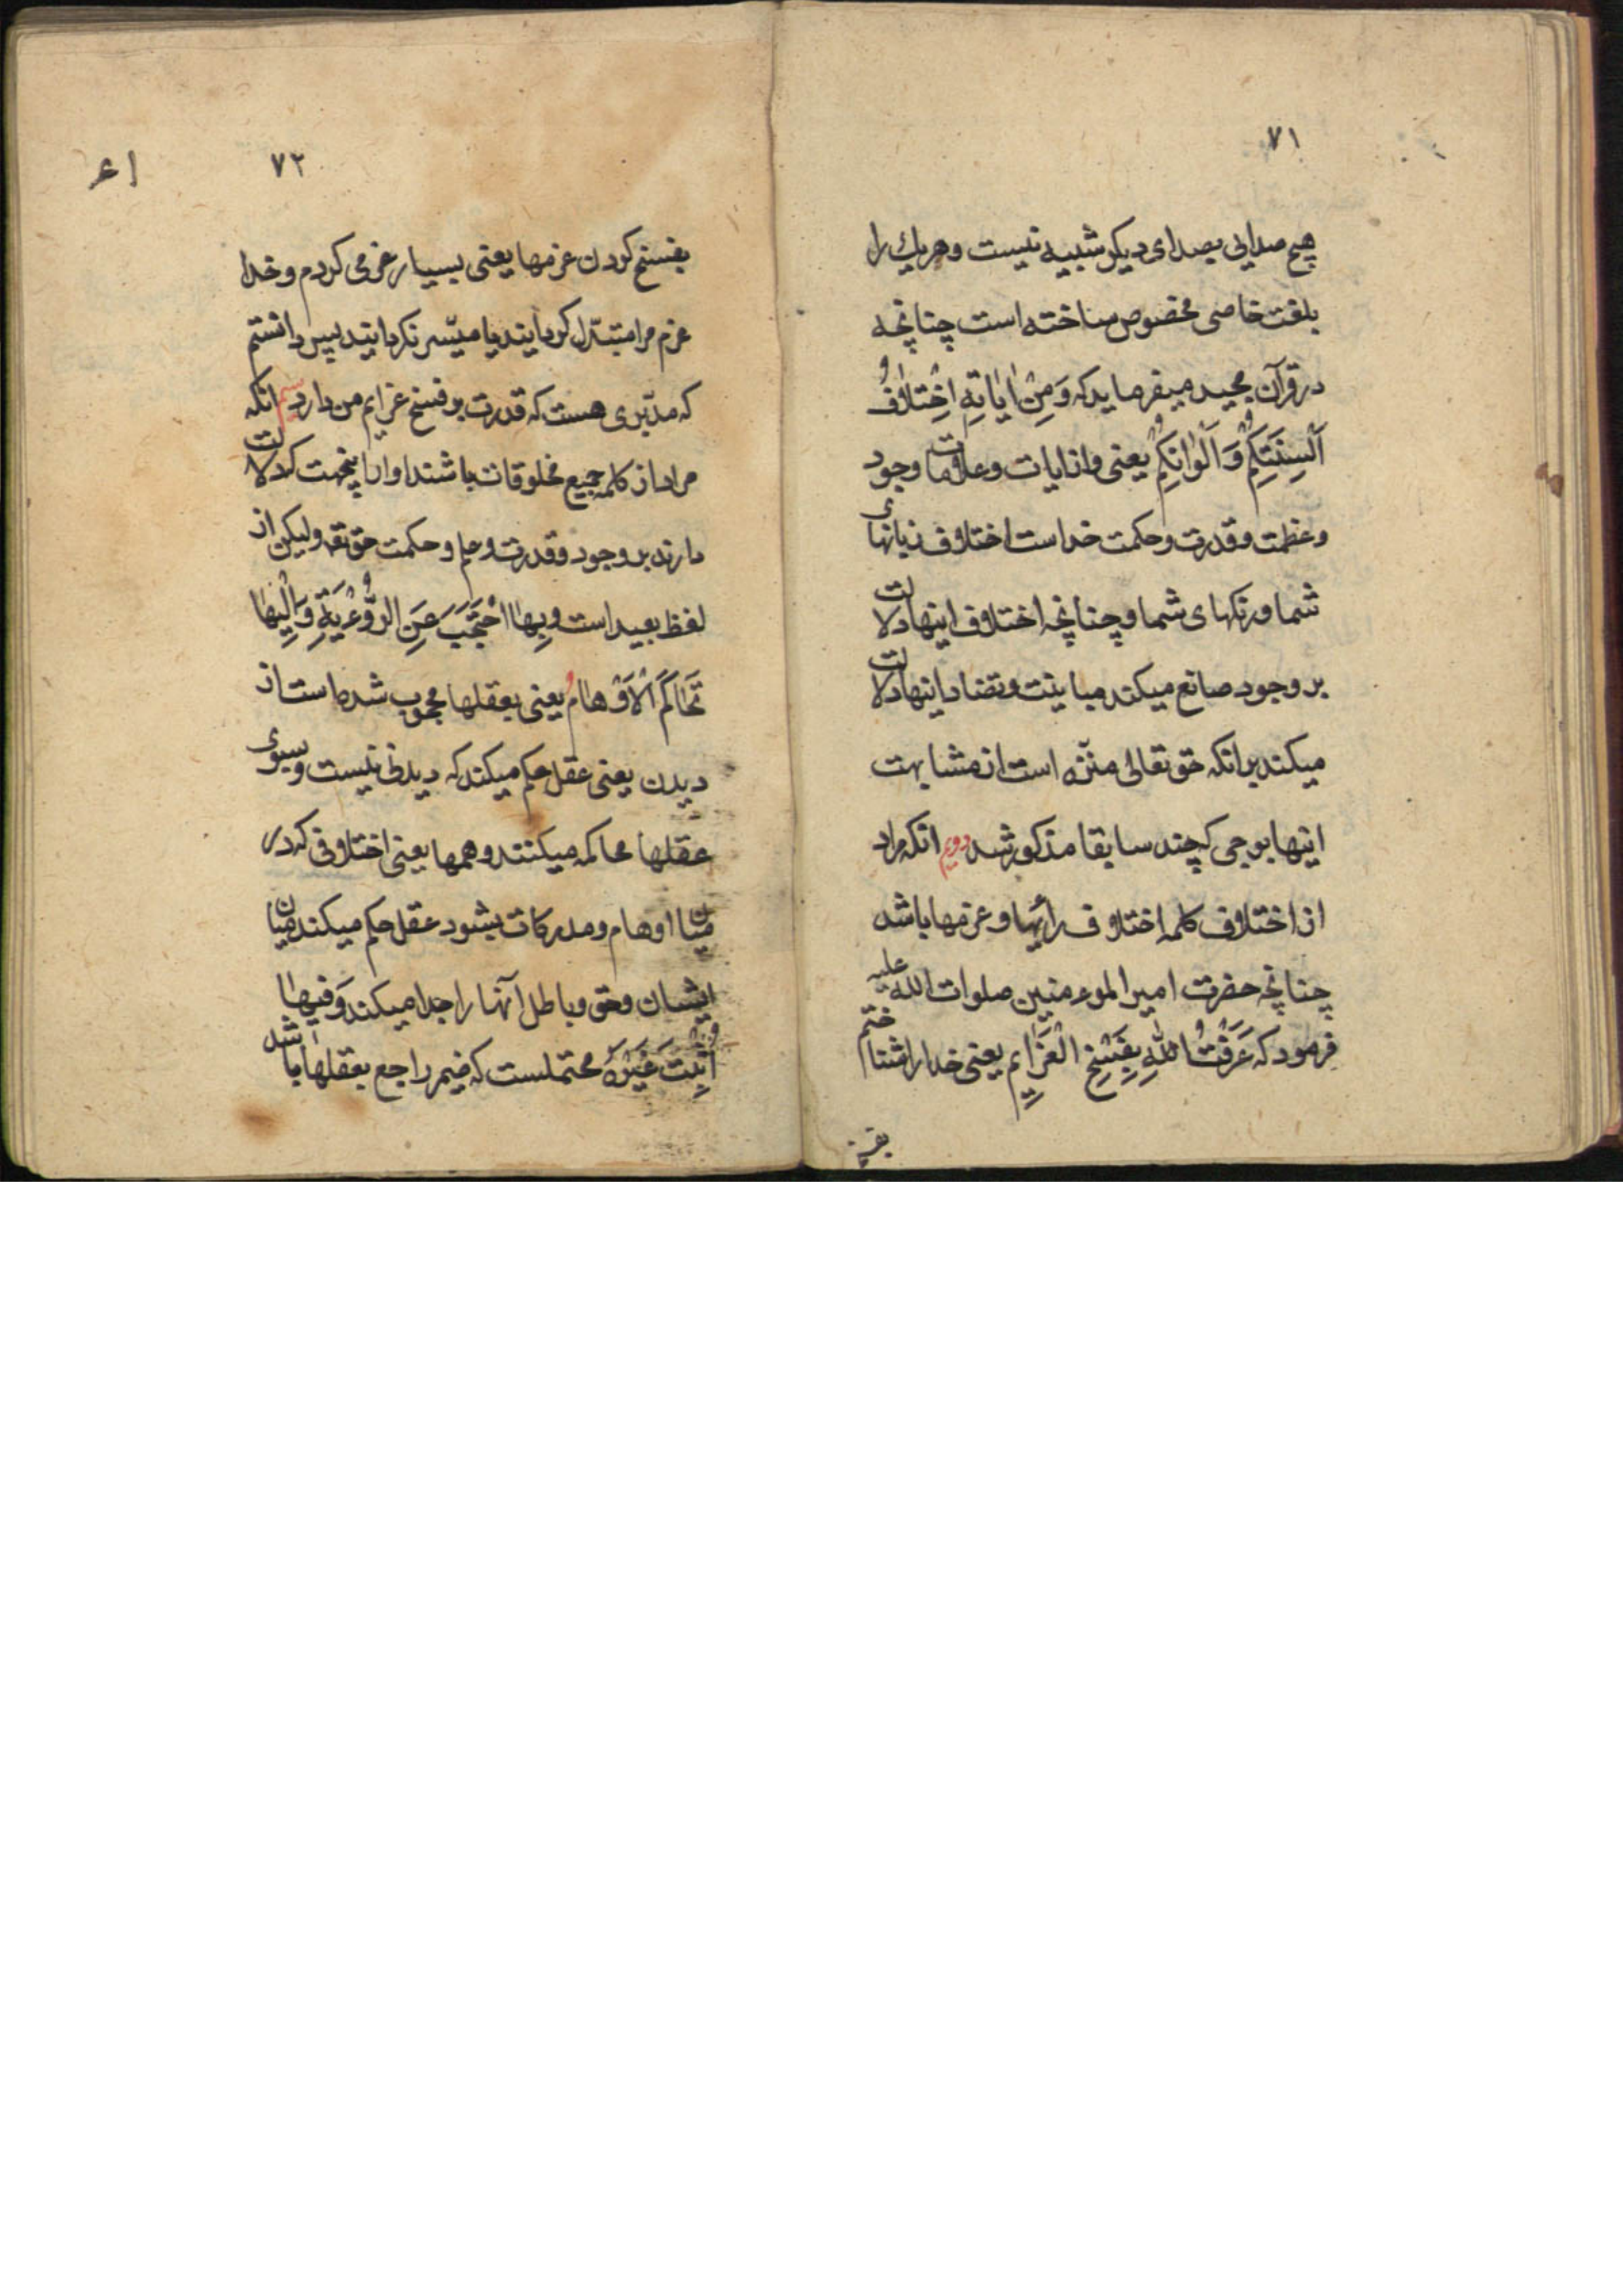 ٧١
هیچ صدایی بصدای دیکر شبیه نیست و هریك را
بلغت خاصی مخصوص ساخته است چنانچه
در قرآن مجید میفرماید که وَ مِنْ اٰیٰاتِهِ اِخْتِلٰافُ
اَلْسِنَتِكُمْ وَ اَلْوٰانِكُمْ یعنی واز ایات و علامات وجود
و عظمت و قدرت و حکمت خداست اختلاف زبانهای
شما و رنکهای شما و چنانچه اختلاف اینها دلالت
بر وجود صانع میکند مباینت و تضاد اینها دلالت
میکند برانکه حق تعالی منزّه است از مشابهت
اینها بوجهی که چند سابقا مذکور شد دویم انکه مراد
از اختلاف کلمه اختلاف رائیها و عزمها باشد
چنانچه حضرت امیر المومنین صلوات الله علیه
فرمود که عَرَفْتُ اللّٰهِ بِفَسْخِ الْعَزٰایِم یعنی خدا را شناختم
بفسخ
٧٢
بفسخ کردن عزمها یعنی بسیار عزمی کردم و خدا
عزم مرا متبدّل کردانید یا میّسر نکردانید پس دانستم
که مدّبری هست که قدرت بر فسخ عزایم من دارد سیم انکه
مراد از کلمه جمیع مخلوقات باشند او را باینجهت که دلالت
دارند بر وجود و قدرت و علم و حکمت حق تعه ولیکن از
لفظ بعید است وَ بِهٰا احْتَجَبَ عَنِ الرُّوْیَةِ وَ اِلَیْهٰا
تَحٰاکَمُ الْاَوْهٰامُ یعنی بعقلها محجوب شده است از
دیدن یعنی عقل حکم میکند که دیدنی نیست و بسوی
عقلها محاکمه میکنند وهمها یعنی اختلافی که در
میان اوهام و مدرکات بشود عقل حکم میکند میان
ایشان و حق و باطل آنها را جدا میکند وَ فیهٰا
اُثْبِتَ غَیْرُهُ محتملست که ضیمر راجع بعقلها باشد